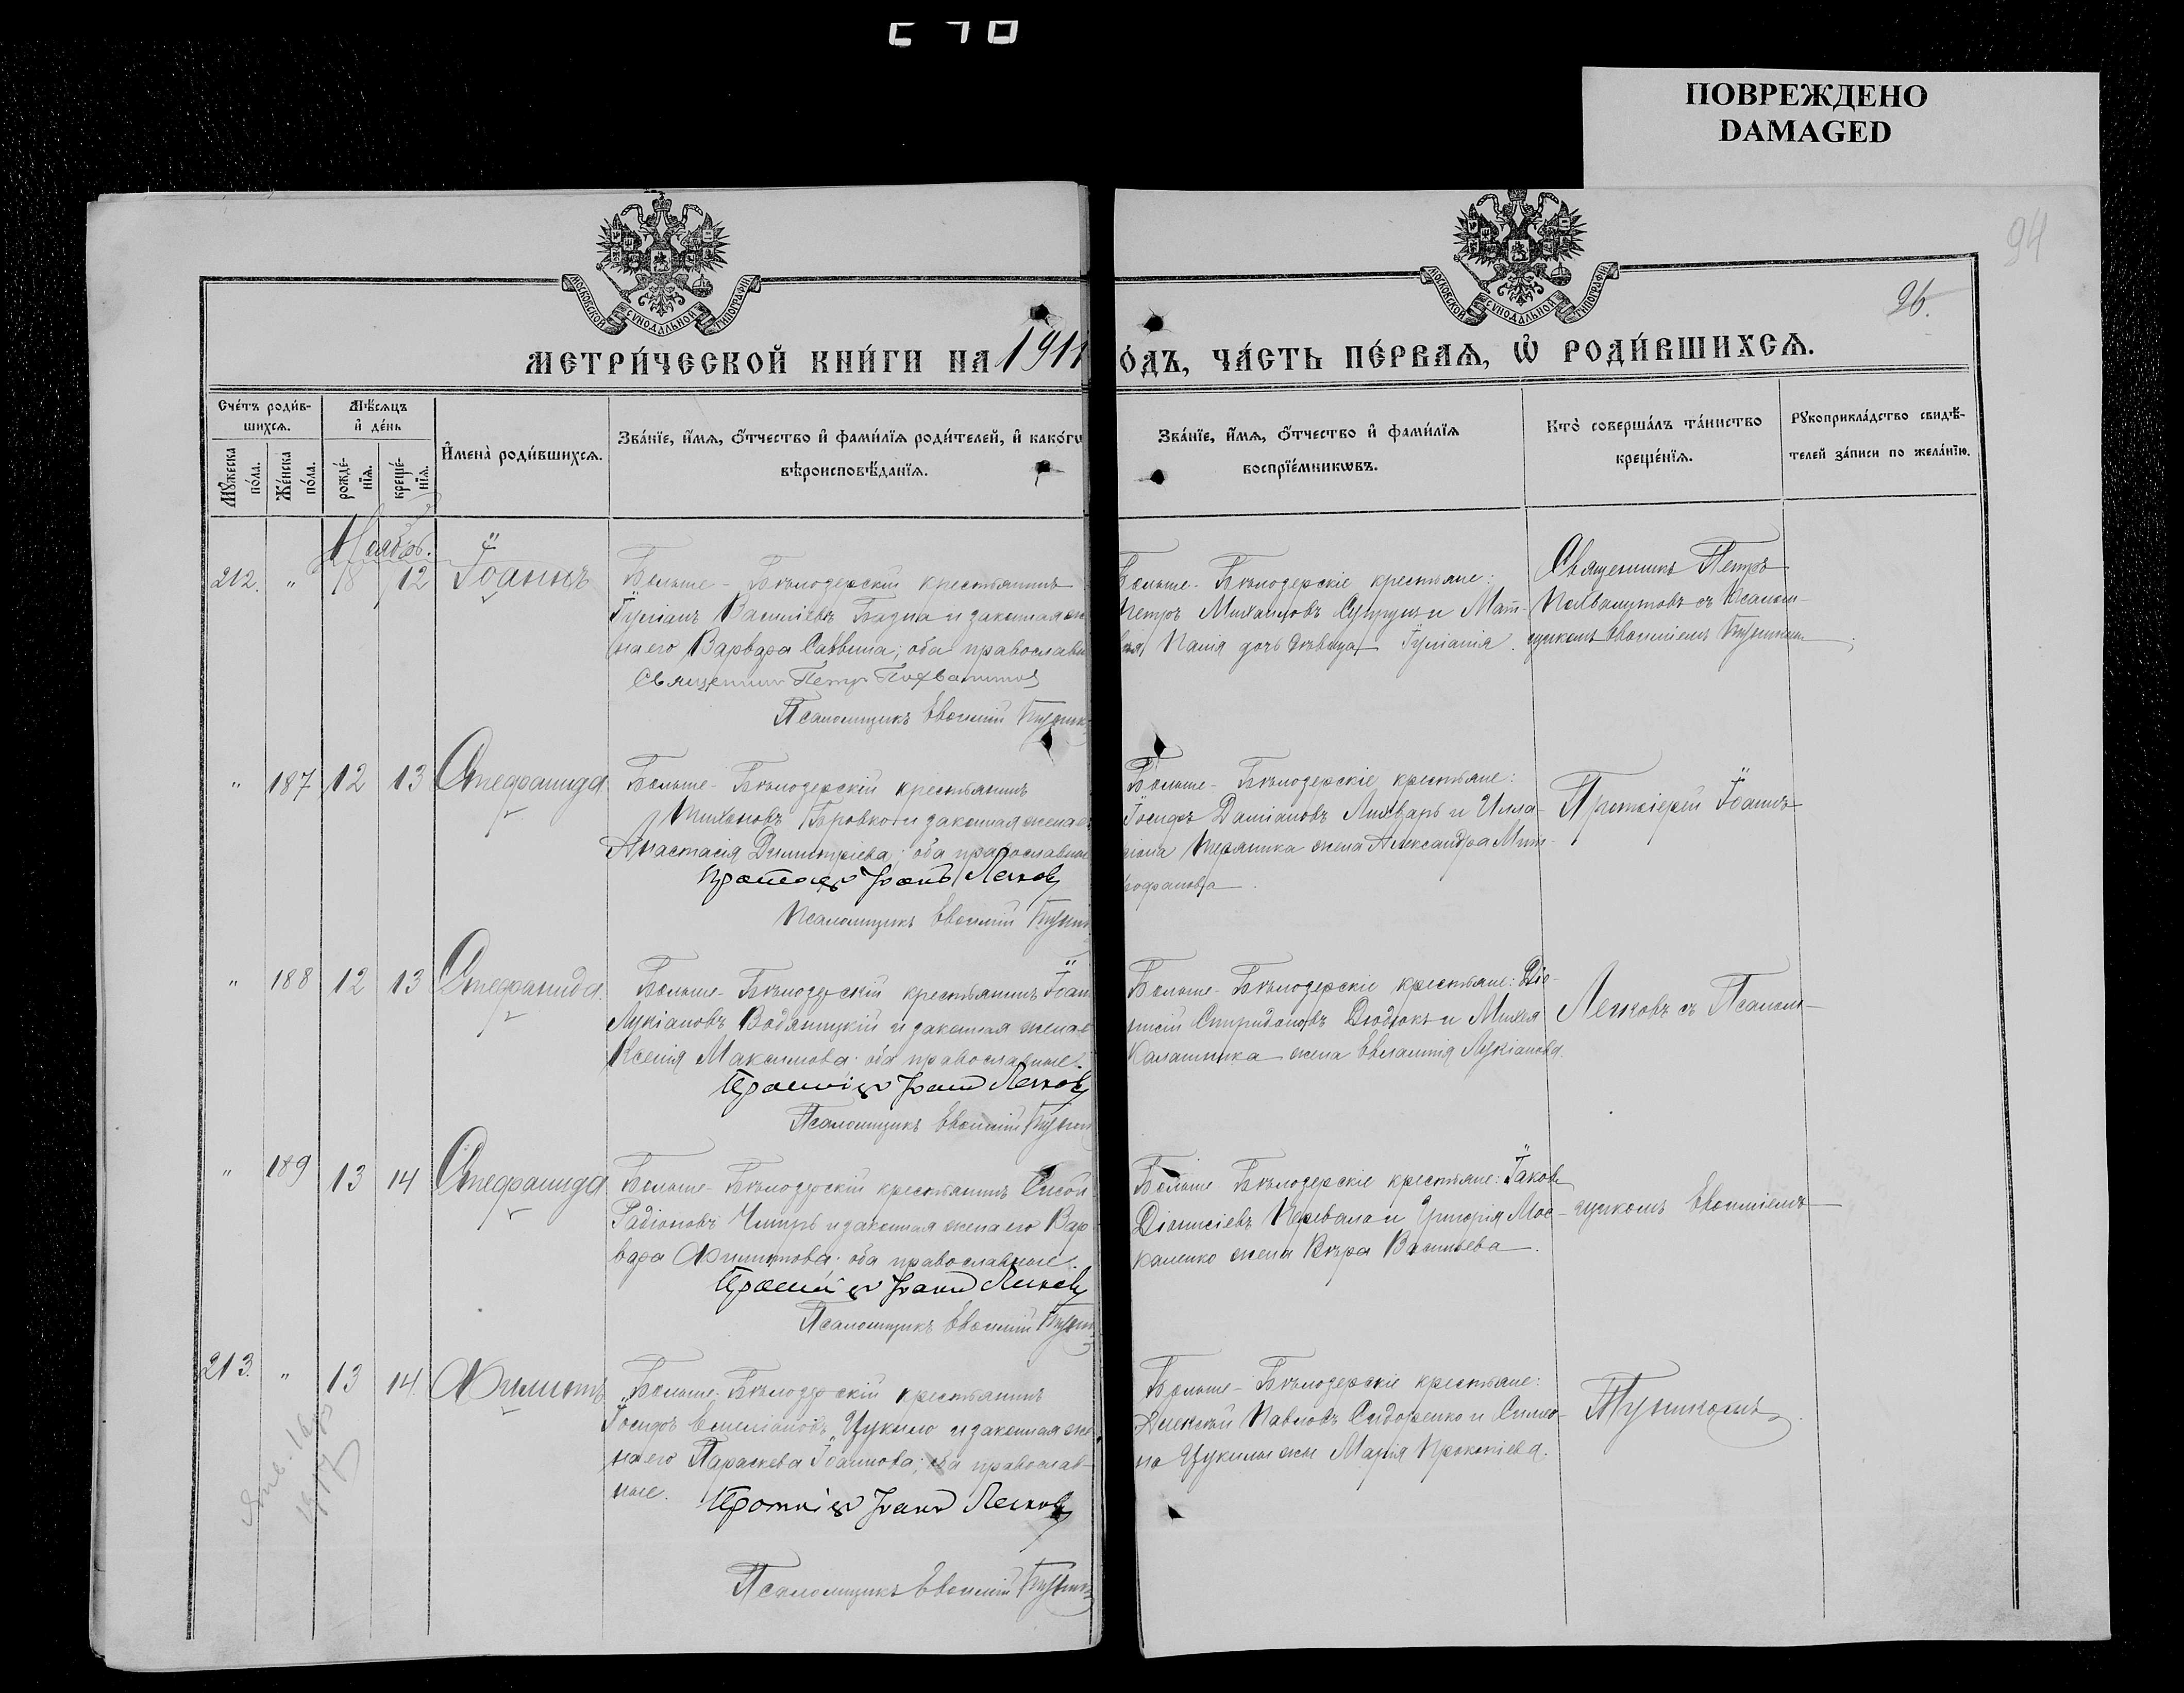 ПОВРЕЖДЕНО
DAMAGED
94
26.
МОСКОВСКОЙ СѴНОДАЛЬНОЙ ТИПОГРАФІИ
МОСКОВСКОЙ СѴНОДАЛЬНОЙ ТИПОГРАФІИ
МЕТРИ́ЧЕСКОЙ КНИ́ГИ НА 1911
О́ДЪ, ЧА́СТЬ ПЕ́РВАѦ, Ѡ҆ РОДИ́ВШИХСѦ.
Сче́тъ роди́в-
шихсѧ.
Мꙋ́жеска по́ла.
Же́нска по́ла.
Мѣ́сѧцъ и҆ де́нь
рожде́-
нїѧ.
креще́-
нїѧ.
И҆мена̀ роди́вшихсѧ.
Зва́нїе, и҆́мѧ, ѻ҆́тчество и҆ фами́лїѧ роди́телей, и҆ како́гѡ
вѣроисповѣ́данїѧ.
Зва́нїе, и҆́мѧ, ѻ҆́тчество и҆ фами́лїѧ
воспрїе́мникѡвъ.
Кто̀ соверша́лъ та́инство
креще́нїѧ.
Рꙋкоприкла́дство свидѣ́-
телей за́писи по жела́нїю.
Ноябрь.
212. " 8 12 Іоаннъ
Больше-Бѣлозерскій крестьянинъ
Іуліанъ Василіевъ Бадна и законная же
на его Варвара Саввина; оба православн
Священник Петр Похвалитов
Псаломщикъ Евѳимій
Больше-Бѣлозерскіе крестьяне:
Петръ Михаиловъ Супрун и Мат-
дочь дѣвица Іуліанія.
Священникъ Петръ
Похвалитовъ съ Псалом-
щикомъ Евѳиміемъ
" 187 12 13 Стефанида
Больше-Бѣлозерскій крестьянинъ
Тихоновъ Бровко и законная жена е
Анастасія Димитріева; оба православные
Протоіер Іоанъ Лесков
Псаломщикъ Евѳимій
Больше-Бѣлозерскіе крестьяне:
Іосифъ Даміановъ Лихварь и Илла-
ріона жена Александра Мит-
рофанова.
Протоіерей Іоаннъ
" 188 12 13 Стефанида.
Больше-Бѣлозерскій крестьянинъ Іоан
Лукіановъ Водяницкій и законная жена е
Ксенія Максимова; оба православные.
Протоіер Іоанн Лесков
Псаломщикъ Евѳимій
Больше-Бѣлозерскіе крестьяне: Діо-
нисій Спиридоновъ Дюдюкъ и Михея
Калашника жена Евлампія Лукіанова.
Лесковъ съ Псалом-
" 189 13 14 Стефанида
Больше-Бѣлозерскій крестьянинъ Сисой
Радіоновъ Чмиръ и законная жена его Вар
вара Филиппова; оба православные.
Протоіер Іоанн Лесков
Псаломщикъ Евѳимій
Больше-Бѣлозерскіе крестьяне: Іаковъ
Діонисіевъ Перевала и Григорія Мос-
каленко жена Вѣра Васильева.
щикомъ Евѳиміемъ
213. " 13 14. Филиппъ
Больше-Бѣлозерскій крестьянинъ
Іосифъ Емеліановъ Цукило и законная же
на его Параскева Іоаннова; оба православ-
ные.
Протоіер Іоанн Лесков
Псаломщикъ Евѳимій
Больше-Бѣлозерскіе крестьяне:
Алексѣй Павловъ Сидоренко и Симео-
на Цукилы жена Марія Прокопіева.